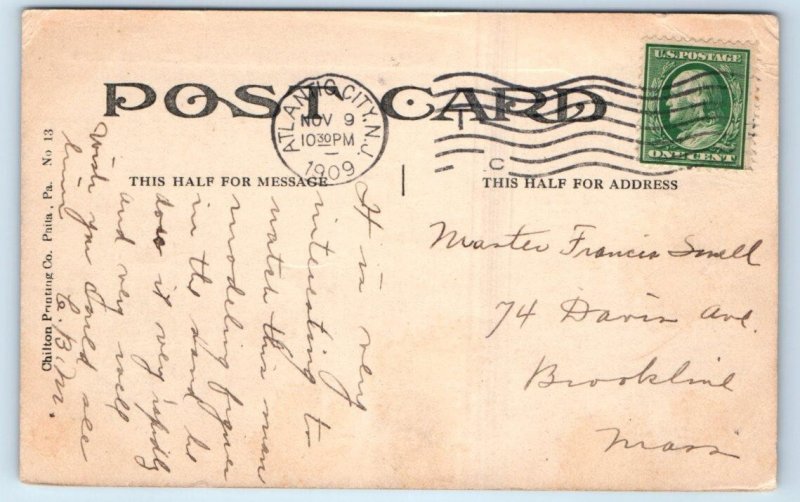 POST CARD
ATLANTIC CITY, N.J.
NOV 9
10 30 PM
1909
C
U.S. POSTAGE
ONE CENT
THIS HALF FOR MESSAGE
THIS HALF FOR ADDRESS
Chilton Printing Co. Phila, Pa. No 13
It is very
interesting to
watch this man
modeling figures
in the sand he
does it very rapidly
and very well
wish you could see
him
E. B. M.
Master Francis Snell
74 Davis Ave.
Brookline
Mass